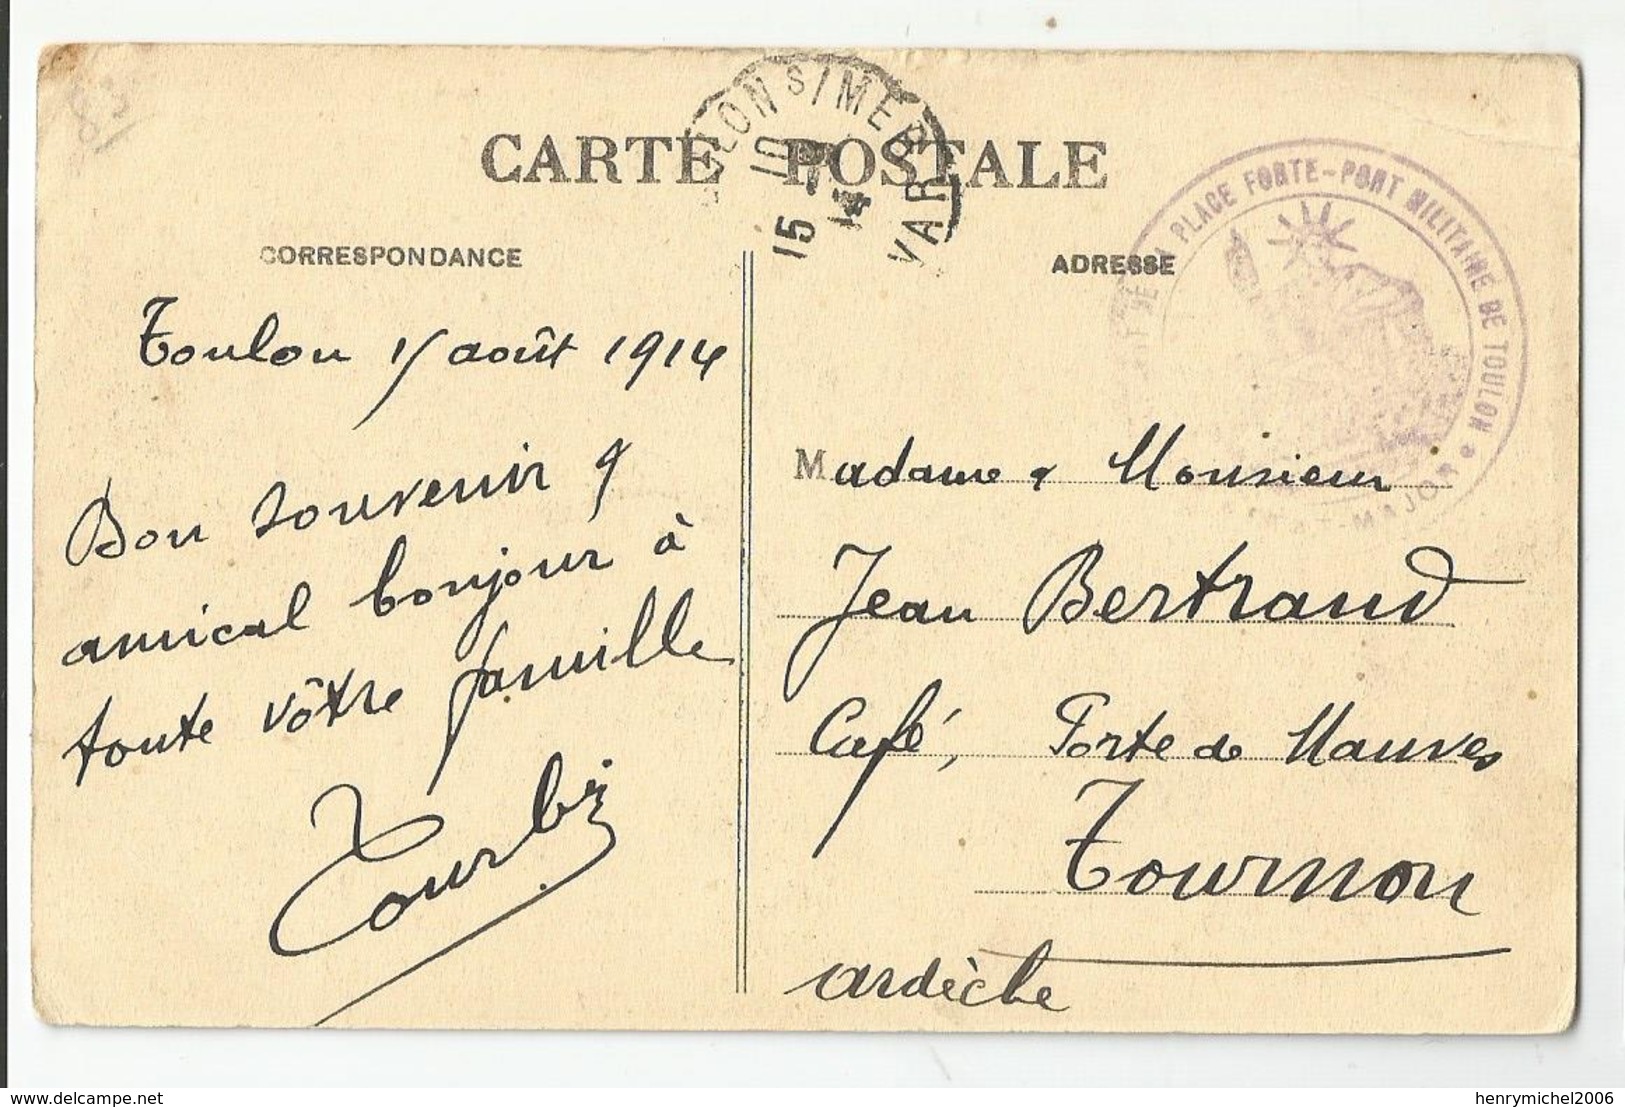 83
CARTE POSTALE
LON S/MER
10
15 -
14
VAR
PLACE FORTE-PORT MILITAIRE DE TOULON
MAJOR
CORRESPONDANCE
Toulon 1/ août 1914
Bon souvenir &
amical bonjour à
toute vôtre famille
ADRESSE
Madame & Monsieur
Jean Bertrand
Café, Porte de Mauves
Tournon
ardèche
henrymichel2006